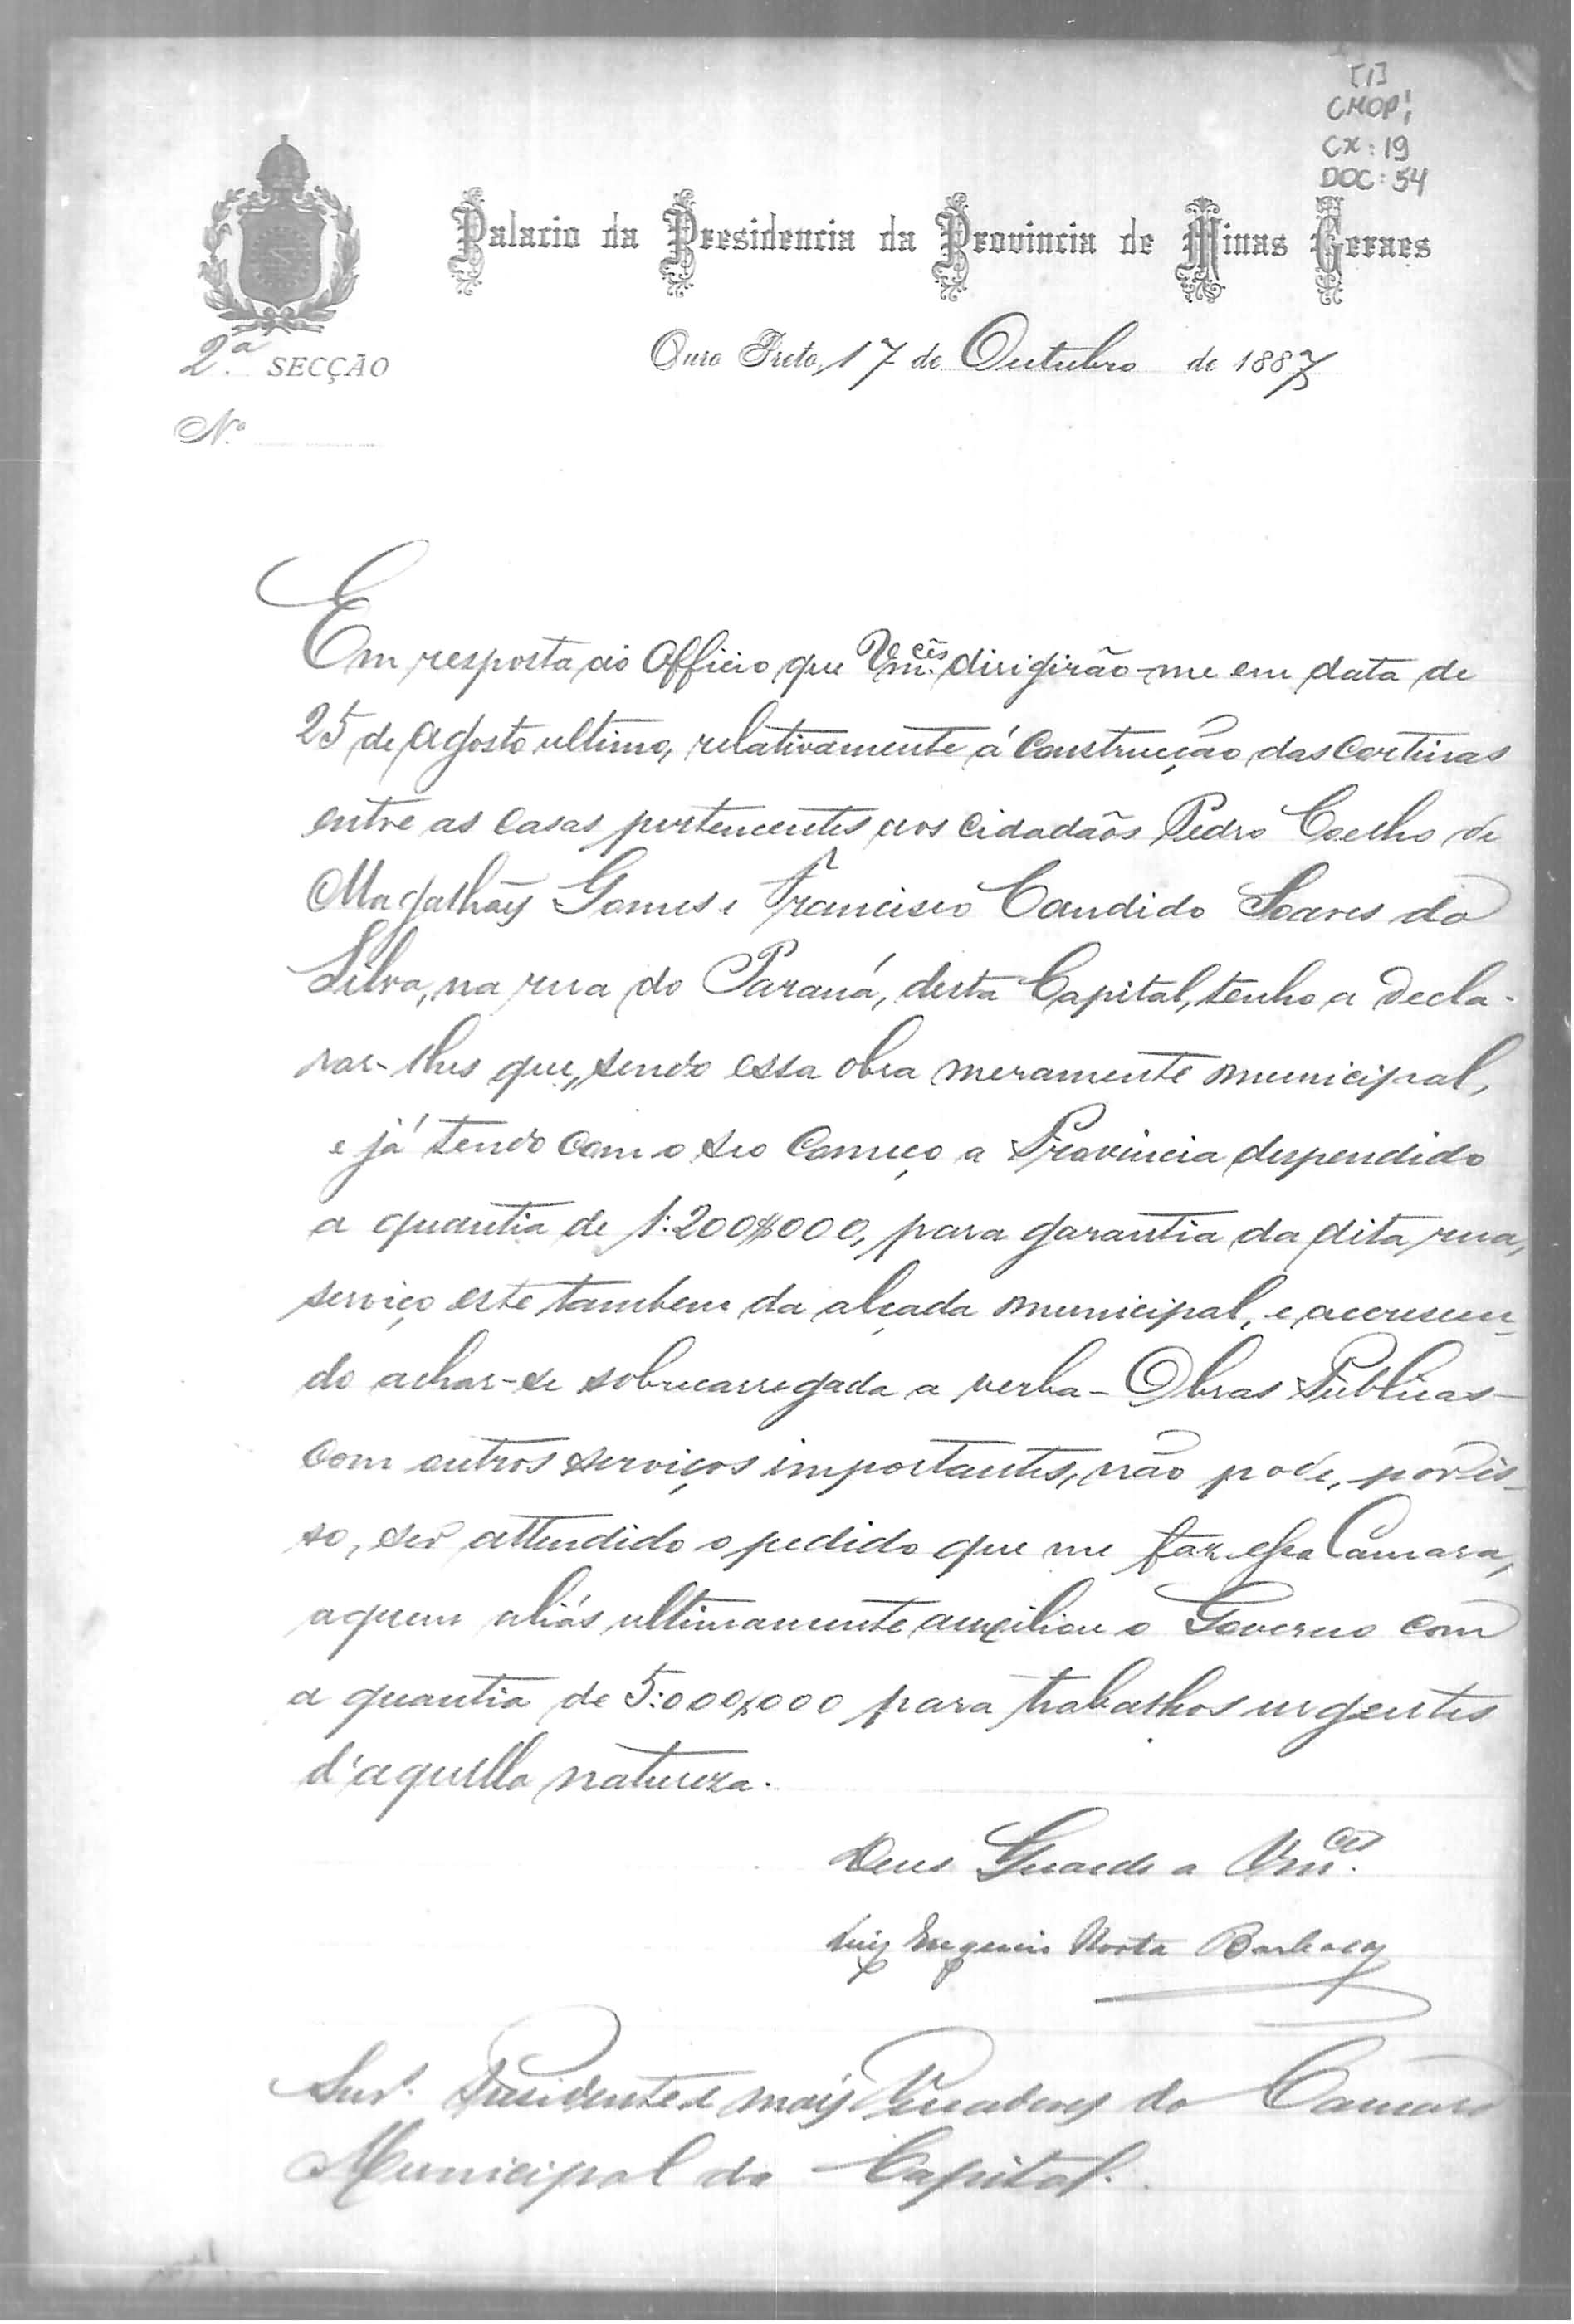 [1]
CMOP;
CX: 19
DOC: 54
Palacio da Presidencia da Provincia de Minas Geraes
2.ª SECÇÃO
Ouro Preto, 17 de Outubro de 1887
N.º
Em resposta ao Officio que Vm.cês dirigirão-me em data de
25 de Agosto ultimo, relativamente á construcção das cortinas
entre as casas pertencentes aos cidadãos Pedro Coelho de
Magalhães Gomes e Francisco Candido Soares da
Silva, na rua do Paraná, desta Capital, tenho a decla-
rar-lhes que, sendo essa obra meramente municipal,
e já tendo com o seo começo a Provincia despendido
a quantia de 1:200$000, para garantia da dita rua,
serviço este tambem da alçada municipal, e accrescen-
do achar-se sobrecarregada a verba - Obras Publicas -
com outros serviços importantes, não pode, por is-
so, ser attendido o pedido que me faz essa Camara,
a quem aliás ultimamente auxiliou o Governo com
a quantia de 5:000$000 para trabalhos urgentes
d'aquella natureza.
Deus Guarde a Vm.ces
Luiz Eugenio Horta Barboza
Snr.s Presidente e mais Vereadores da Camara
Municipal da Capital.